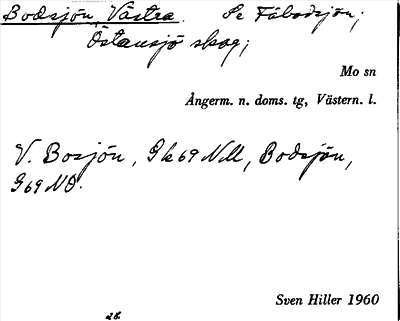 Bodsjön, Västra. Se Fäbodsjön;
Östansjö skog;
Mo sn
Ångerm. n. doms. tg, Västern. l.
V. Bosjön, Gk 69 NM, Bodsjön,
G 69 NO.
Sven Hiller 1960